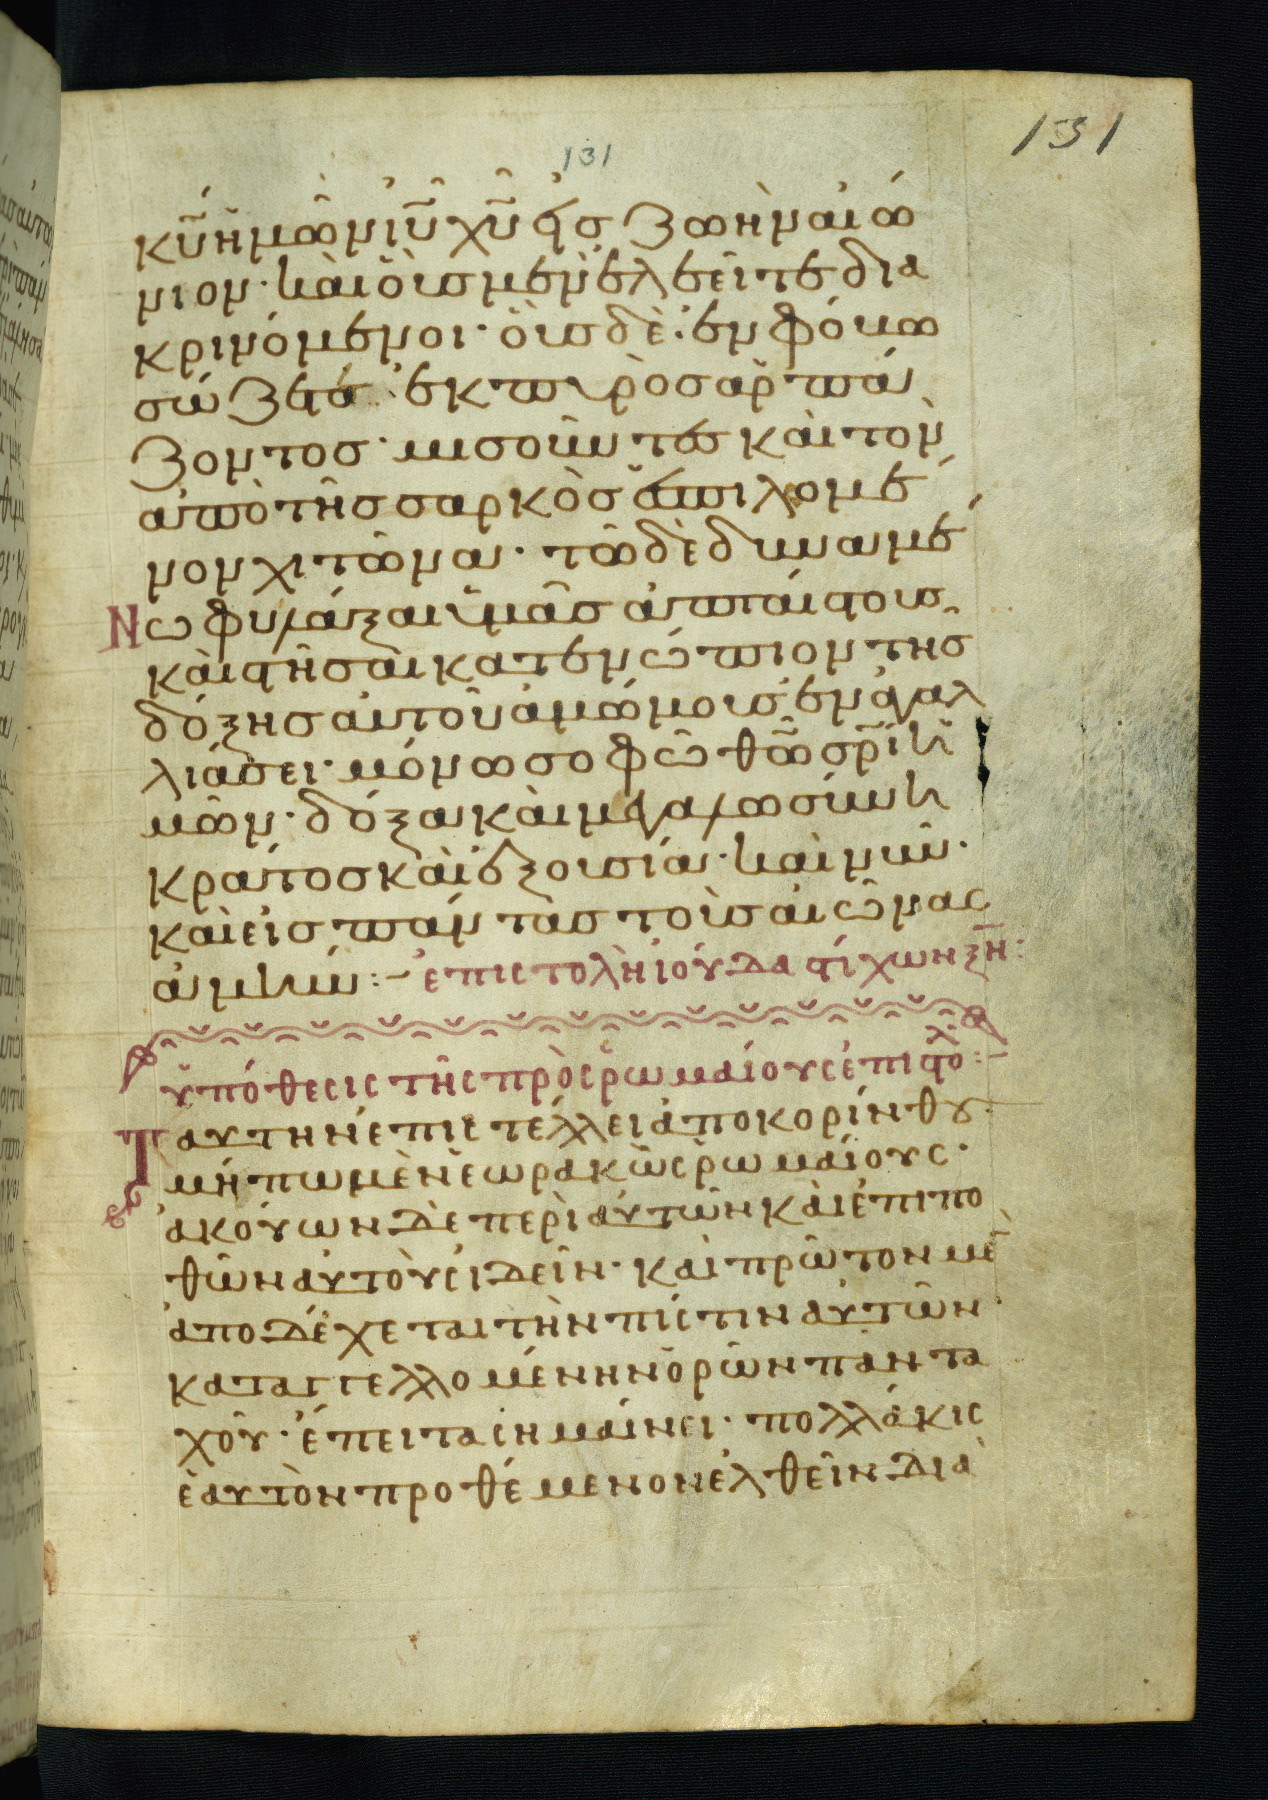 131
131
κυ̅ ἡμῶν ιυ̅ χυ̅ εἰς ζωὴν αἰώ
νιον· καὶ οὓς μὲν ἐλεεῖτε δια
κρινόμενοι· οὓς δὲ ἐν φόβω
σώζετε ἐκ πυρὸς ἁρπά
ζοντες· μισοῦντες καὶ τὸν
ἀπὸ τῆς σαρκὸς ἐσπιλωμέ
νον χιτῶνα· τῶ δὲ δυναμέ
νω φυλάξαι ὑμᾶς ἀπταίστους
καὶ στῆσαι κατενώπιον τῆς
δόξης αὐτοῦ ἀμώμους ἐν ἀγαλ
λιάσει· μόνω σοφῶ θω̅ σρι̅ ἡ
μῶν· δόξα καὶ μεγαλωσύνη
κράτος καὶ ἐξουσία· καὶ νῦν·
καὶ εἰς πάντας τοὺς αἰῶνας
ἀμήν :– ἐπιστολὴ ἰούδα στίχων ξη̅:
ὑπόθεσις τῆς πρὸς ῥωμαίους ἐπιστολ :–
Ταύτην ἐπιστέλλει ἀπὸ κορίνθου·
μήπω μὲν ἑωρακὼς ῥωμαίους·
ἀκούων δὲ περὶ αὐτῶν καὶ ἐπιπο
θῶν αὐτοὺς ἰδεῖν· καὶ πρῶτον μὲ̅
ἀποδέχεται τὴν πίστιν αὐτῶν
καταγγελλομένην ὁρῶν πάντα
χοῦ· ἔπειτα σημαίνει· πολλάκις
ἑαυτὸν προθέμενον ἐλθεῖν διὰ